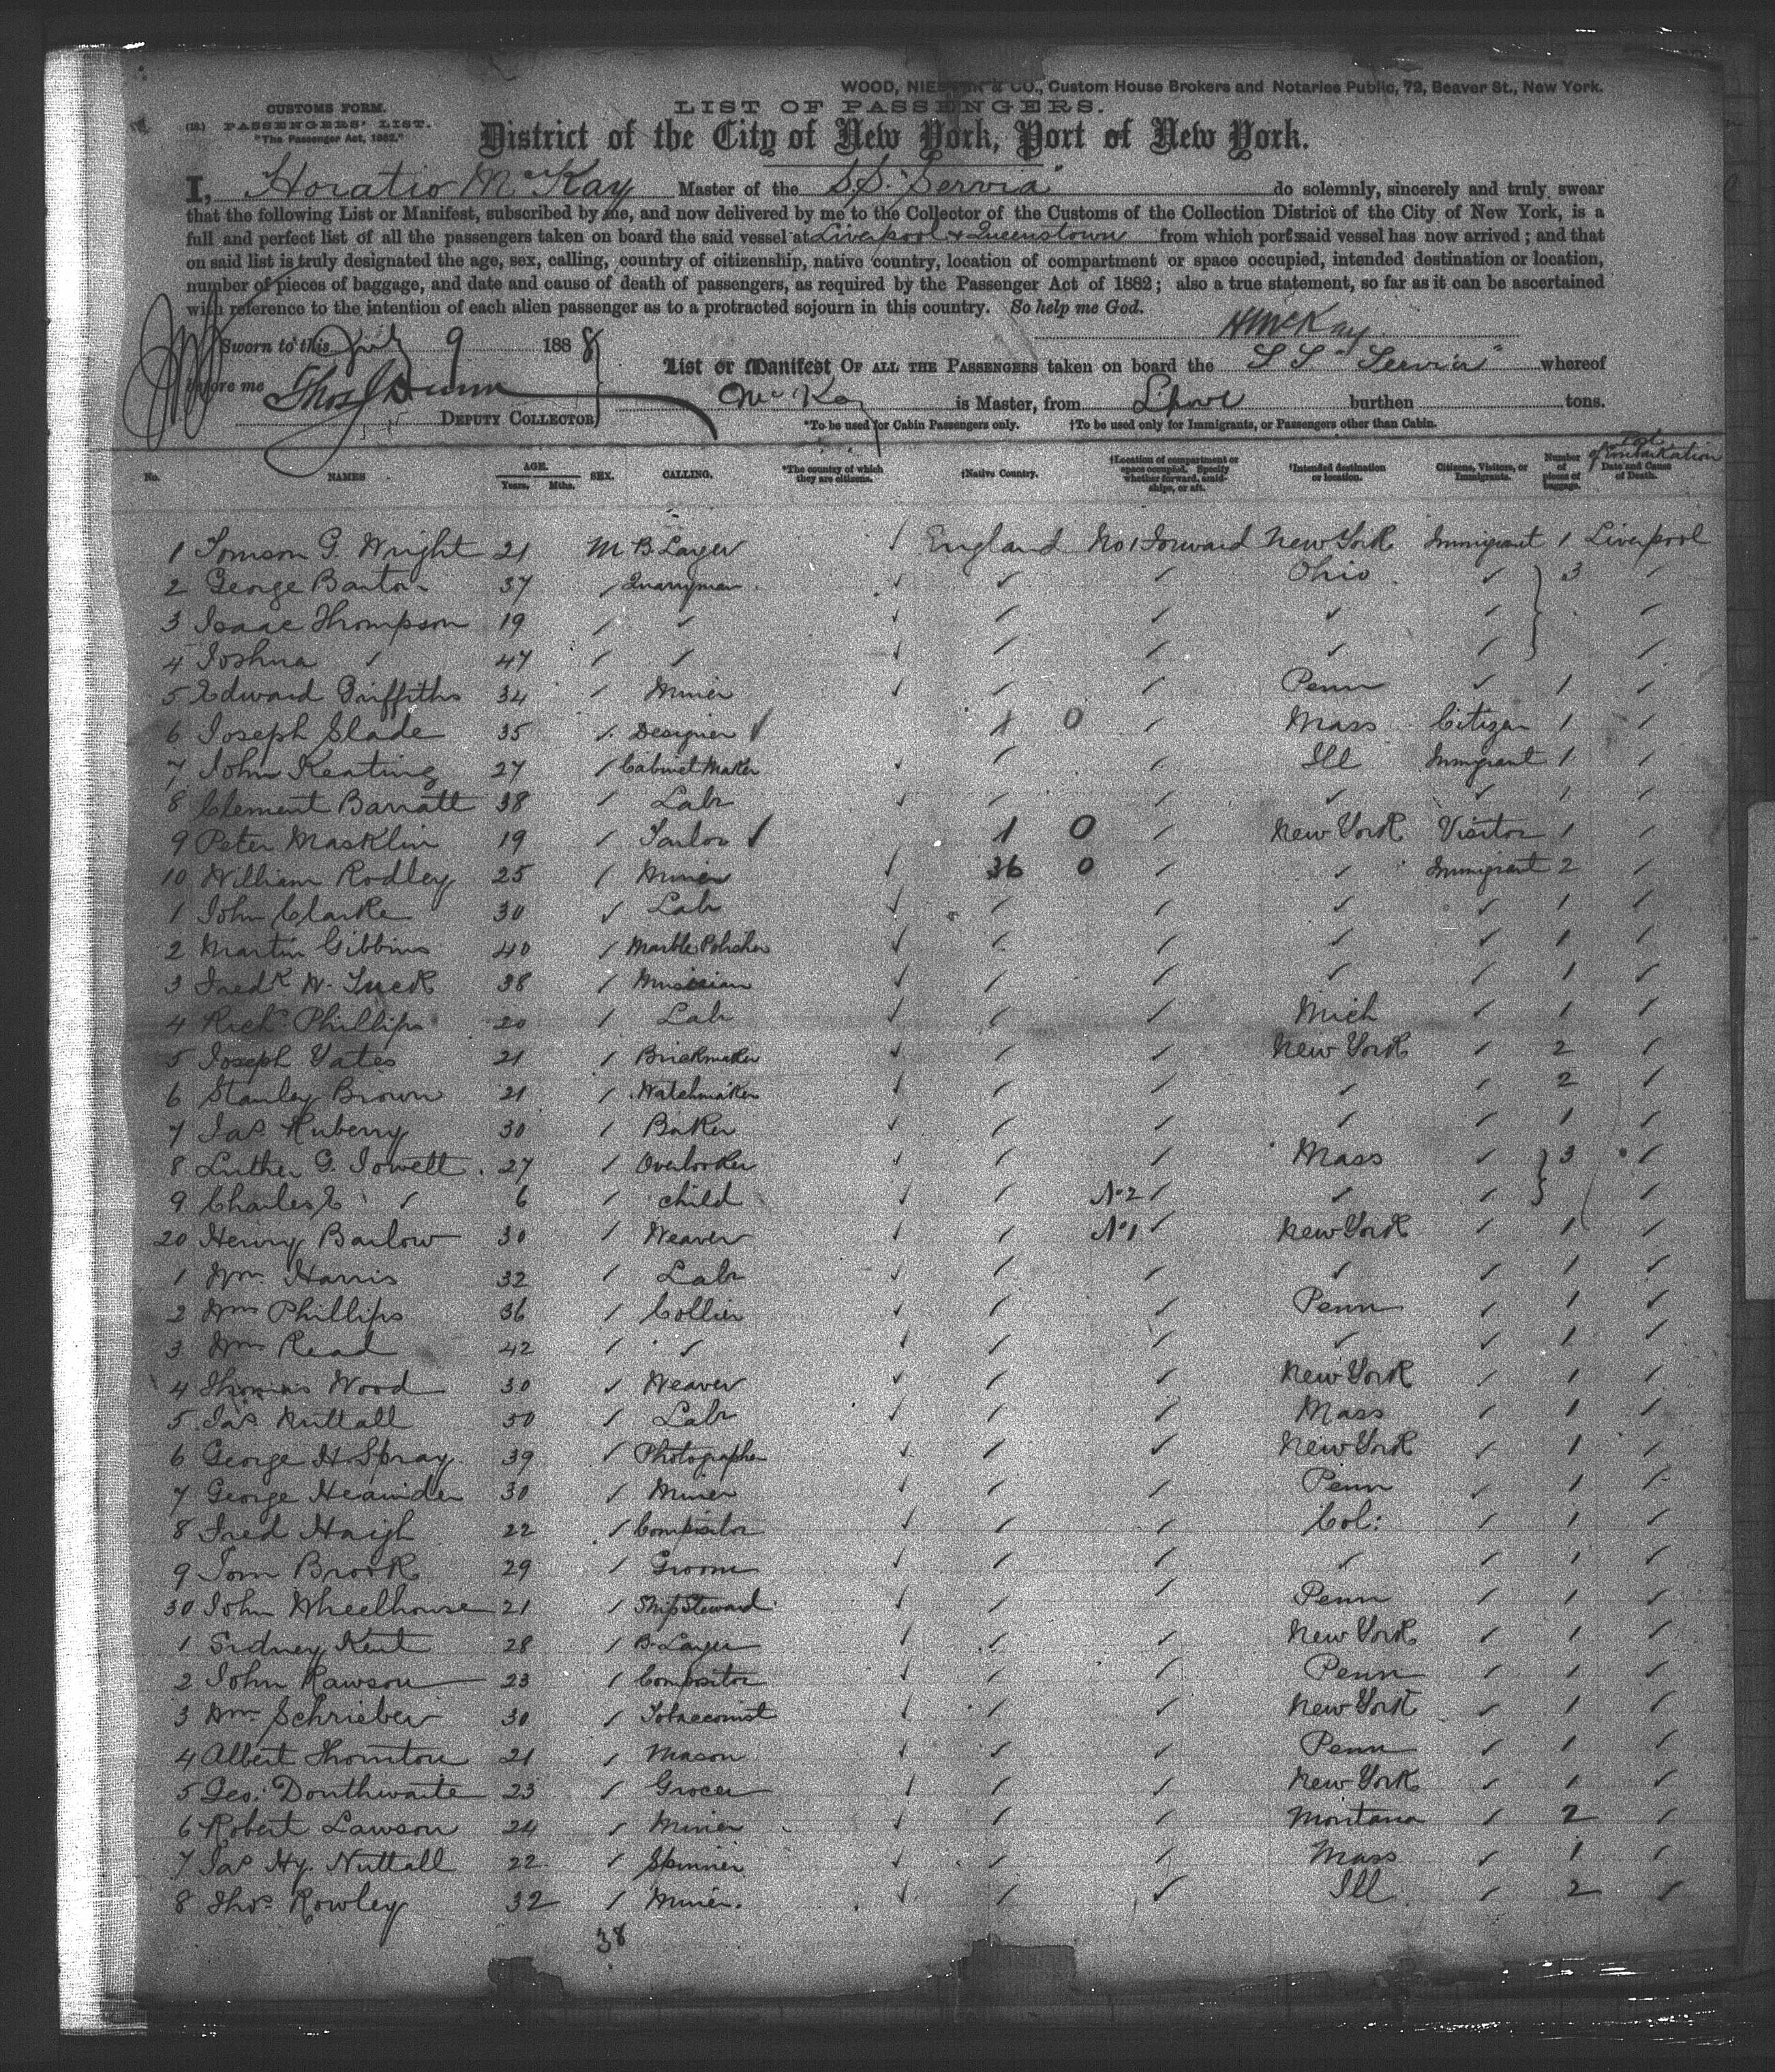 WOOD, NIEBUHR & CO., Custom House Brokers and Notaries Public, 72, Beaver St., New York.
CUSTOMS FORM.
(18.) PASSENGERS' LIST.
"The Passenger Act, 1882."
LIST OF PASSENGERS.
District of the City of New York, Port of New York.
I, Horatio McKay Master of the S.S. "Servia" do solemnly, sincerely and truly swear
that the following List or Manifest, subscribed by me, and now delivered by me to the Collector of the Customs of the Collection District of the City of New York, is a
full and perfect list of all the passengers taken on board the said vessel at Liverpool & Queenstown from which port said vessel has now arrived; and that
on said list is truly designated the age, sex, calling, country of citizenship, native country, location of compartment or space occupied, intended destination or location,
number of pieces of baggage, and date and cause of death of passengers, as required by the Passenger Act of 1882; also a true statement, so far as it can be ascertained
with reference to the intention of each alien passenger as to a protracted sojourn in this country. So help me God.
HMcKay
Sworn to this July 9 1888
before me Thos J Dunn
DEPUTY COLLECTOR
List or Manifest OF ALL THE PASSENGERS taken on board the S S "Servia" whereof
McKay is Master, from L'pool burthen tons.
*To be used for Cabin Passengers only. †To be used only for Immigrants, or Passengers other than Cabin.
No. NAMES AGE. Years. Mths. SEX. CALLING. *The country of which they are citizens. †Native Country. †Location of compartment or space occupied. Specify whether forward, amidships, or aft. †Intended destination or location. Citizens, Visitors, or Immigrants. Number of pieces of baggage. Date and Cause of Death. of Embarkation
1 Tomson G. Wright 21 M B. Layer England No 1 Forward New York Immigrant 1 Liverpool
2 George Barton 37 Quarryman Ohio 3
3 Isaac Thompson 19
4 Joshua 47
5 Edward Griffiths 34 Miner Penn 1
6 Joseph Slade 35 Designer 1 0 Mass Citizen 1
7 John Keating 27 Cabinet Maker Ill Immigrant 1
8 Clement Barratt 38 Labr 1
9 Peter Masklin 19 Tailor 1 0 New York Visitor 1
10 William Rodley 25 Miner 36 0 Immigrant 2
1 John Clarke 30 Labr 1
2 Martin Gibbins 40 Marble Polisher 1
3 Fredk W. Tuck 38 Musician 1
4 Richd Phillips 20 Labr Mich 1
5 Joseph Yates 21 Brickmaker New York 2
6 Stanley Brown 21 Watchmaker 2
7 Jas Ruberry 30 Baker 1
8 Luther G. Jowett 27 Overlooker Mass 3
9 Charles E 6 child No 2
20 Henry Barlow 30 Weaver No 1 New York 1
1 Wm Harris 32 Labr 1
2 Wm Phillips 36 Collier Penn 1
3 Wm Read 42 1
4 Thomas Wood 30 Weaver New York 1
5 Jas Nuttall 50 Labr Mass 1
6 George H Spray 39 Photographer New York 1
7 George 30 Miner Penn 1
8 Fred Haigh 22 Compositor Col: 1
9 Tom Brook 29 Groom 1
30 John Wheelhouse 21 Ship Steward Penn 1
1 Sidney Kent 28 B. Layer New York 1
2 John Rawson 23 Compositor Penn 1
3 Wm Schrieber 30 Tobacconist New York 1
4 Albert Thornton 21 Mason Penn 1
5 Geo: Donthwaite 23 Grocer New York 1
6 Robert Lawson 24 Miner Montana 2
7 Jas Hy. Nuttall 22 Spinner Mass 1
8 Thos Rowley 32 Miner. Ill 2
38